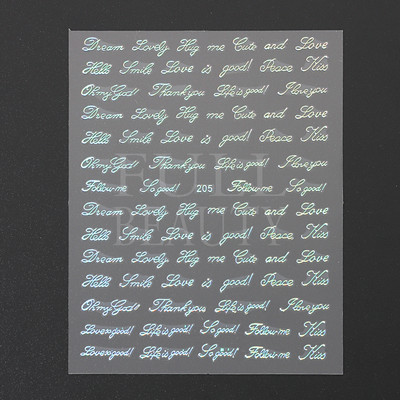 Dream Lovely Hug me Cute and Love
Hello Smile Love is good! Peace Kiss
Oh my God! Thank you Life is good! I love you
Dream Lovely Hug me Cute and Love
Hello Smile Love is good! Peace Kiss
Oh my God! Thank you Life is good! I love you
Follow me So good! 205 Follow me So good!
Dream Lovely Hug me Cute and Love
Hello Smile Love is good! Peace Kiss
Dream Lovely Hug me Cute and Love
Hello Smile Love is good! Peace Kiss
Oh my God! Thank you Life is good! I love you
Love so good! Life is good! So good! Follow me Kiss
Love so good! Life is good! So good! Follow me Kiss
FULL
BEAUTY